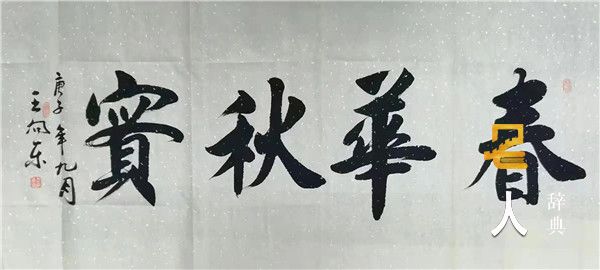 春華秋實
庚子年九月
王向东
名人
辞典